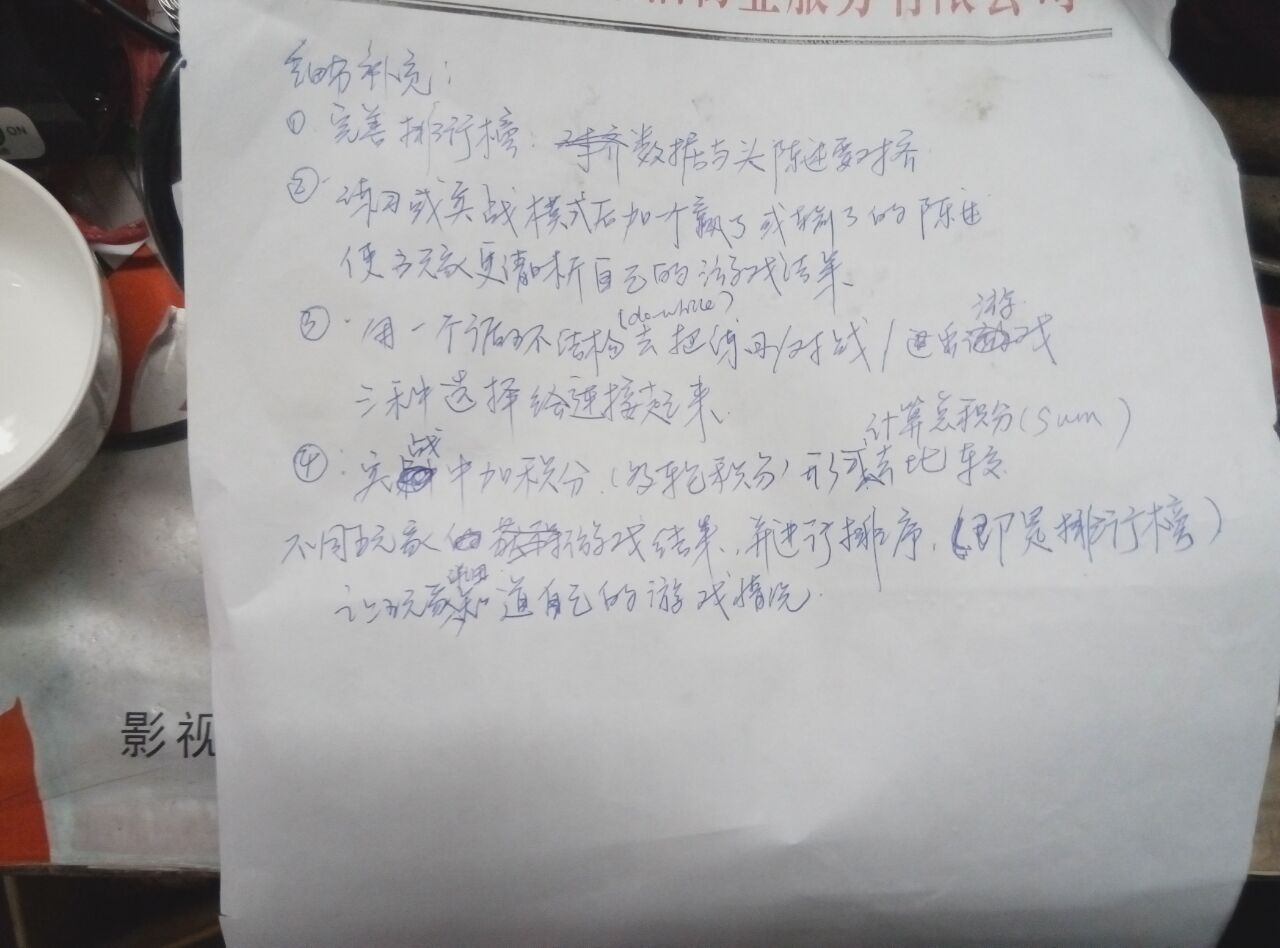 物业服务有限公司
细节补充：
① 完善排行榜：数据与头陈述要对齐
②. 练习或实战模式后加个赢了或输了的陈述
使玩家更清晰自己的游戏结果、
③. 用一个循环结构(do-while)去把练习/对战/退出游戏
三种选择给连接起来、
④. 实战中加积分、(每轮积分)计算总积分(sum)形式去比较
不同玩家游戏结果、并进行排序、(即是排行榜)
让玩家知道自己的游戏情况.
ON
影视